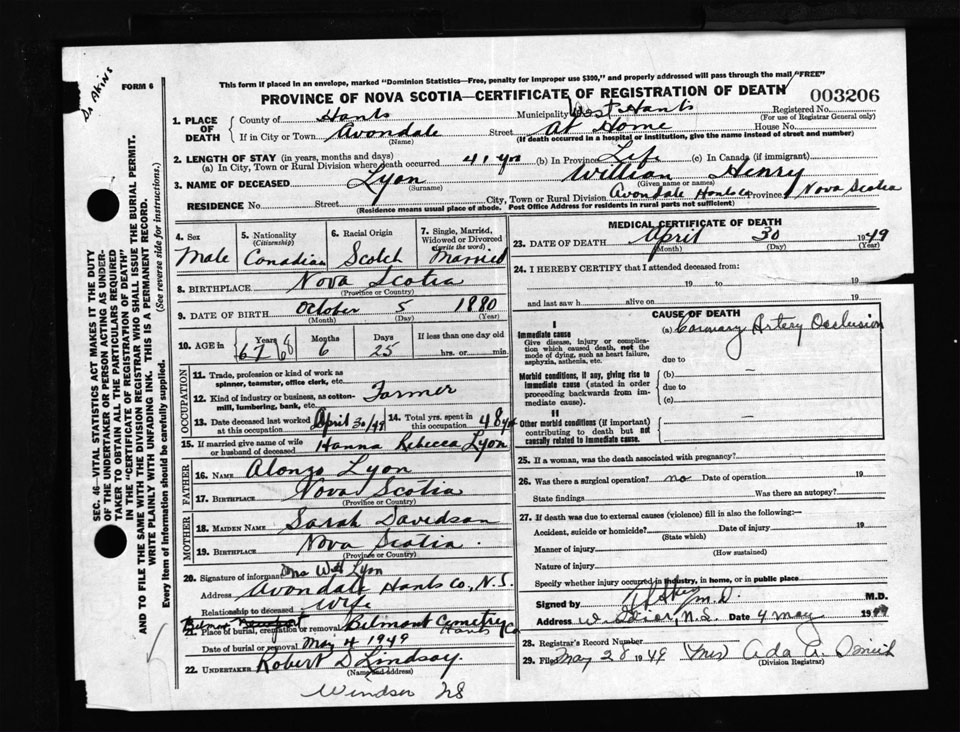 Dr Akins
FORM 6
This form if placed in an envelope, marked "Dominion Statistics—Free, penalty for improper use $300," and properly addressed will pass through the mail "FREE"
PROVINCE OF NOVA SCOTIA—CERTIFICATE OF REGISTRATION OF DEATH
003206
SEC. 46—VITAL STATISTICS ACT MAKES IT THE DUTY
OF THE UNDERTAKER OR PERSON ACTING AS UNDER-
TAKER TO OBTAIN ALL THE PARTICULARS REQUIRED
IN THE "CERTIFICATE OF REGISTRATION OF DEATH"
AND TO FILE THE SAME WITH THE DIVISION REGISTRAR WHO SHALL ISSUE THE BURIAL PERMIT.
WRITE PLAINLY WITH UNFADING INK. THIS IS A PERMANENT RECORD.
Every item of information should be carefully supplied. (See reverse side for instructions.)
1. PLACE OF DEATH
County of Hants Municipality West Hants Registered No.
(For use of Registrar General only)
If in City or Town Avondale Street At Home House No.
(Name) (If death occurred in a hospital or institution, give the name instead of street and number)
2. LENGTH OF STAY (in years, months and days)
(a) In City, Town or Rural Division where death occurred 41 yrs (b) In Province Life (c) In Canada (if immigrant)
3. NAME OF DECEASED Lyon William Henry
(Surname) (Given name or names)
RESIDENCE No. Street City, Town or Rural Division Avondale Hants Co Province Nova Scotia
(Residence means usual place of abode. Post Office Address for residents in rural parts not sufficient)
4. Sex Male
5. Nationality (Citizenship) Canadian
6. Racial Origin Scotch
7. Single, Married, Widowed or Divorced (write the word) Married
8. BIRTHPLACE Nova Scotia
(Province or Country)
9. DATE OF BIRTH October 5 1880
(Month) (Day) (Year)
10. AGE in Years 67 68 Months 6 Days 25 If less than one day old
hrs. or min.
OCCUPATION
11. Trade, profession or kind of work as
spinner, teamster, office clerk, etc. Farmer
12. Kind of industry or business, as cotton-
mill, lumbering, bank, etc.
13. Date deceased last worked at this occupation April 30/49 14. Total yrs. spent in this occupation 48 yrs
15. If married give name of wife or husband of deceased Hanna Rebecca Lyon
FATHER
16. NAME Alonzo Lyon
17. BIRTHPLACE Nova Scotia
(Province or Country)
MOTHER
18. MAIDEN NAME Sarah Davidson
19. BIRTHPLACE Nova Scotia.
(Province or Country)
20. Signature of informant Mrs W H Lyon
Address Avondale Hants Co, N.S.
Relationship to deceased Wife
21. Place of burial, cremation or removal Belmont Cemetry
Hants Co
Date of burial or removal May 4 1949
22. UNDERTAKER Robert D Lindsay.
(Name and address)
Windsor NS
MEDICAL CERTIFICATE OF DEATH
23. DATE OF DEATH April 30 1949
(Month) (Day) (Year)
24. I HEREBY CERTIFY that I attended deceased from:
19 to 19
and last saw h alive on 19
CAUSE OF DEATH
I
Immediate cause (a) Coronary Artery Occlusion
Give disease, injury or complication which caused death, not the mode of dying, such as heart failure, asphyxia, asthenia, etc.
due to
Morbid conditions, if any, giving rise to immediate cause (stated in order proceeding backwards from immediate cause). (b) —
due to
(c)
II
Other morbid conditions (if important) contributing to death but not causally related to immediate cause. —
25. If a woman, was the death associated with pregnancy?
26. Was there a surgical operation? no Date of operation 19
State findings Was there an autopsy?
27. If death was due to external causes (violence) fill in also the following:—
Accident, suicide or homicide? Date of injury 19
(State which)
Manner of injury
(How sustained)
Nature of injury
Specify whether injury occurred in industry, in home, or in public place
Signed by M.D. M.D.
Address Windsor, N.S. Date 4 May 1949
28. Registrar's Record Number
29. Filed May 28 1949 (Mrs) Ada A.
(Division Registrar)